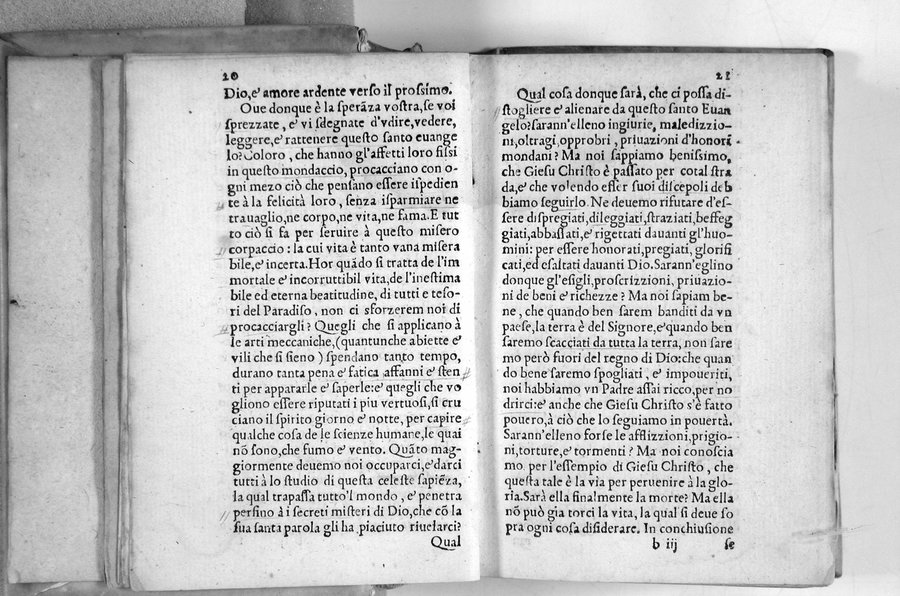 20
Dio,e' amore ardente verso il prossimo.
Oue donque è la sperāza vostra,se voi
sprezzate , e' vi sdegnate d'vdire,vedere,
leggere,e' rattenere questo santo euange
lo?Coloro , che hanno gl'affetti loro fissi
in questo mondaccio, procacciano con o-
gni mezo ciò che pensano essere ispedien
te à la felicità loro , senza isparmiare ne
trauaglio,ne corpo,ne vita,ne fama.E tut
to ciò si fa per seruire à questo misero
corpaccio : la cui vita è tanto vana misera
bile,e' incerta.Hor quādo si tratta de l'im
mortale e' incorruttibil vita,de l'inestima
bile ed eterna beatitudine, di tutti e teso-
ri del Paradiso , non ci sforzerem noi di
procacciargli? Quegli che si applicano à
le arti meccaniche,(quantunche abiette e'
vili che si sieno ) spendano tanto tempo,
durano tanta pena e' fatica affanni e' sten
ti per appararle e' saperle:e' quegli che vo
gliono essere riputati i piu vertuosi,si cru
ciano il spirito giorno e' notte, per capire
qualche cosa de le scienze humane,le quai
nō sono,che fumo e' vento. Quāto mag-
giormente deuemo noi occuparci,e'darci
tutti à lo studio di questa celeste sapiēza,
la qual trapassa tutto'l mondo , e' penetra
persino à i secreti misteri di Dio,che cō la
sua santa parola gli ha piaciuto riuelarci?
Qual
21
Qual cosa donque sarà, che ci possa di-
stogliere e' alienare da questo santo Euan
gelo?sarann'elleno ingiurie, maledizzio-
ni,oltragi,opprobri , priuazioni d'honori
mondani? Ma noi sappiamo benissimo,
che Giesu Christo è passato per cotal stra
da,e' che volendo esser suoi discepoli deb
biamo seguirlo. Ne deuemo rifutare d'es-
sere dispregiati,dileggiati,straziati,beffeg
giati,abbassati,e' rigettati dauanti gl'huo-
mini: per essere honorati,pregiati, glorifi
cati,ed esaltati dauanti Dio.Sarann'eglino
donque gl'esigli,proscrizzioni, priuazio-
ni de beni e' richezze? Ma noi sapiam be-
ne , che quando ben sarem banditi da vn
paese,la terra è del Signore,e'quando ben
saremo scacciati da tutta la terra, non sare
mo però fuori del regno di Dio:che quan
do bene saremo spogliati , e' impoueriti,
noi habbiamo vn Padre assai ricco,per no
drirci:e' anche che Giesu Christo s'è fatto
pouero,à ciò che lo seguiamo in pouertà.
Sarann'elleno forse le afflizzioni,prigio-
ni,torture,e' tormenti? Ma noi conoscia
mo per l'essempio di Giesu Christo , che
questa tale è la via per peruenire à la glo-
ria.Sarà ella finalmente la morte? Ma ella
nō può gia torci la vita, la qual si deue so
pra ogni cosa disiderare. In conchiusione
b iij se